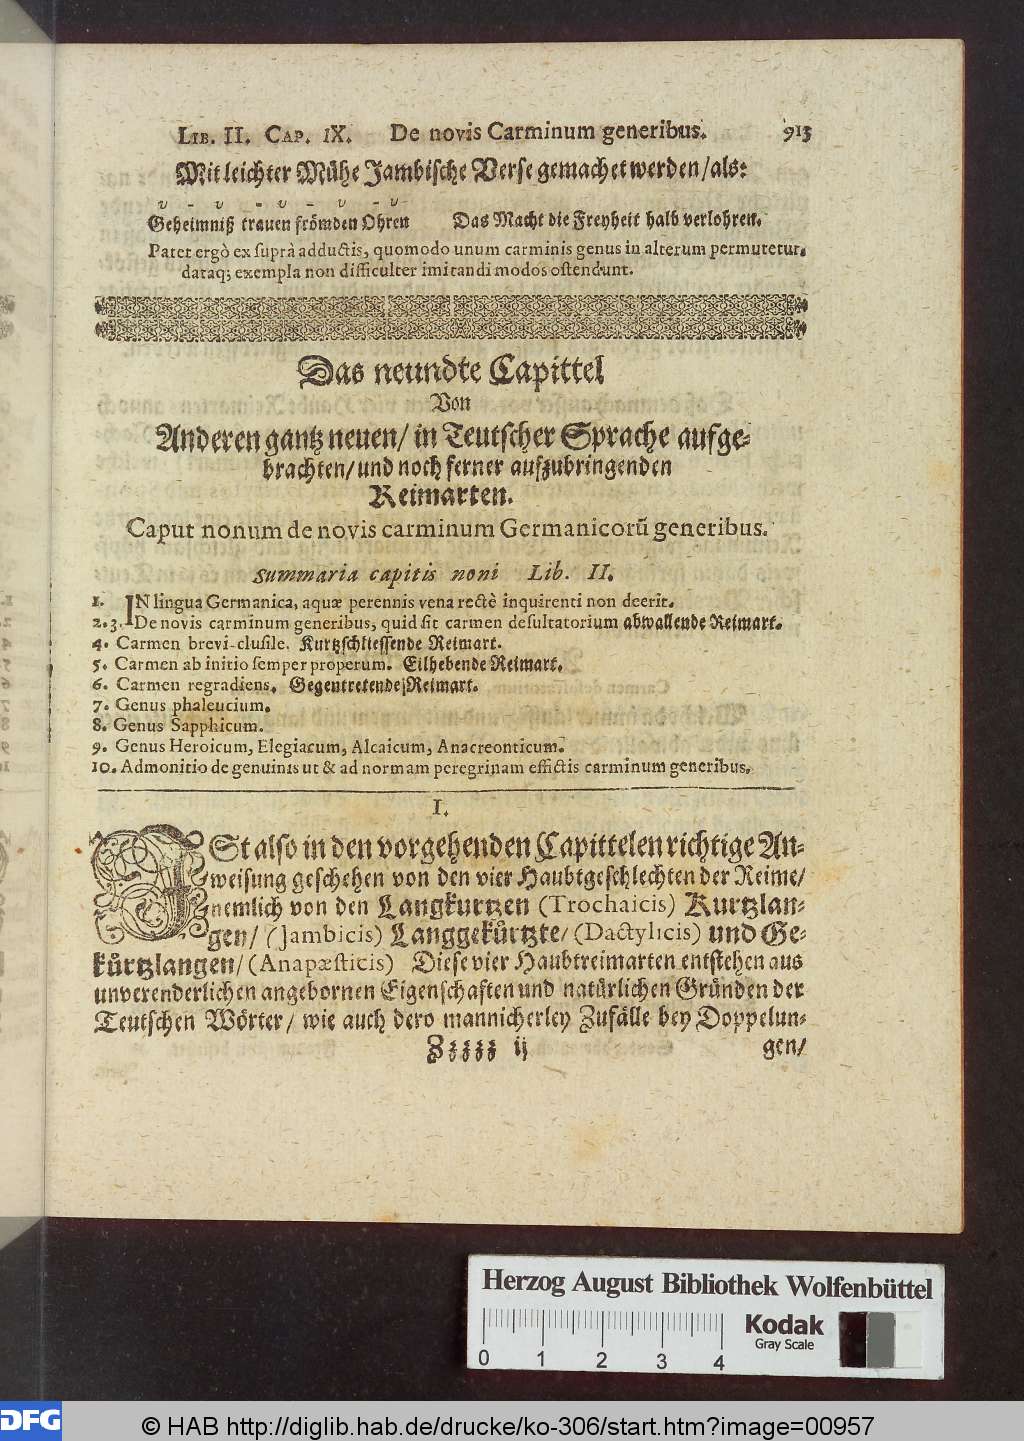 LIB. II. CAP. IX. De novis Carminum generibus. 913
Mit leichter Mühe Jambische Verse gemachet werden/als:
υ - υ - υ - υ - υ
Geheimniß trauen frömden Ohren Das Macht die Freyheit halb verlohren.
Patet ergò ex suprà adductis, quomodo unum carminis genus in alterum permutetur.
dataq; exempla non difficulter imitandi modos ostendunt.
Das neundte Capittel
Von
Anderen gantz neuen/ in Teutscher Sprache aufge-
brachten/ und noch ferner aufzubringenden
Reimarten.
Caput nonum de novis carminum Germanicorũ generibus.
Summaria capitis noni Lib. II.
1. IN lingua Germanica, aquæ perennis vena rectè inquirenti non deerit.
2. 3. De novis carminum generibus, quid sit carmen desultatorium abwallende Reimart.
4. Carmen brevi-clusile. Kurtzschliessende Reimart.
5. Carmen ab initio semper properum. Eilhebende Reimart.
6. Carmen regradiens. Gegentretende Reimart.
7. Genus phaleucium.
8. Genus Sapphicum.
9. Genus Heroicum, Elegiacum, Alcaicum, Anacreonticum.
10. Admonitio de genuinis ut & ad normam peregrinam effictis carminum generibus.
I.
ISt also in den vorgehenden Capittelen richtige An-
weisung geschehen von den vier Haubtgeschlechten der Reime/
nemlich von den Langkurtzen (Trochaicis) Kurtzlan-
gen/ (Jambicis) Langgekůrtzte/ (Dactylicis) und Ge-
kůrtzlangen/ (Anapæsticis) Diese vier Haubtreimarten entstehen aus
unverenderlichen angebornen Eigenschaften und natürlichen Gründen der
Teutschen Wörter/ wie auch dero mannicherley Zufälle bey Doppelun-
Zzzzz ij gen/
Herzog August Bibliothek Wolfenbüttel
Kodak
Gray Scale
0 1 2 3 4
DFG © HAB http://diglib.hab.de/drucke/ko-306/start.htm?image=00957